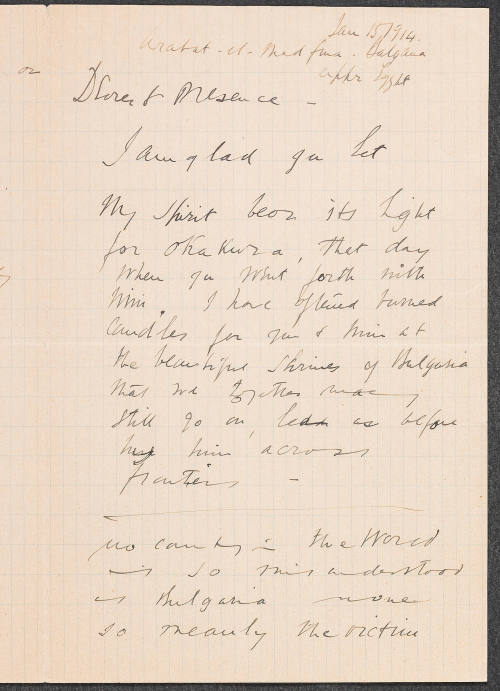 Jan 15/914.
Arabat-el-Madfuna. Balyana
Upper Egypt
or
Dearest Presence -
I am glad you let
My Spirit bear its light
for Okakura, that day
when you went forth with
him. I have often burned
candles for you & him at
the beautiful shrines of Bulgaria
that we together may
still go on, lead as before
him across
frontiers -
no country in the World
is so misunderstood
as Bulgaria none
so meanly the victim